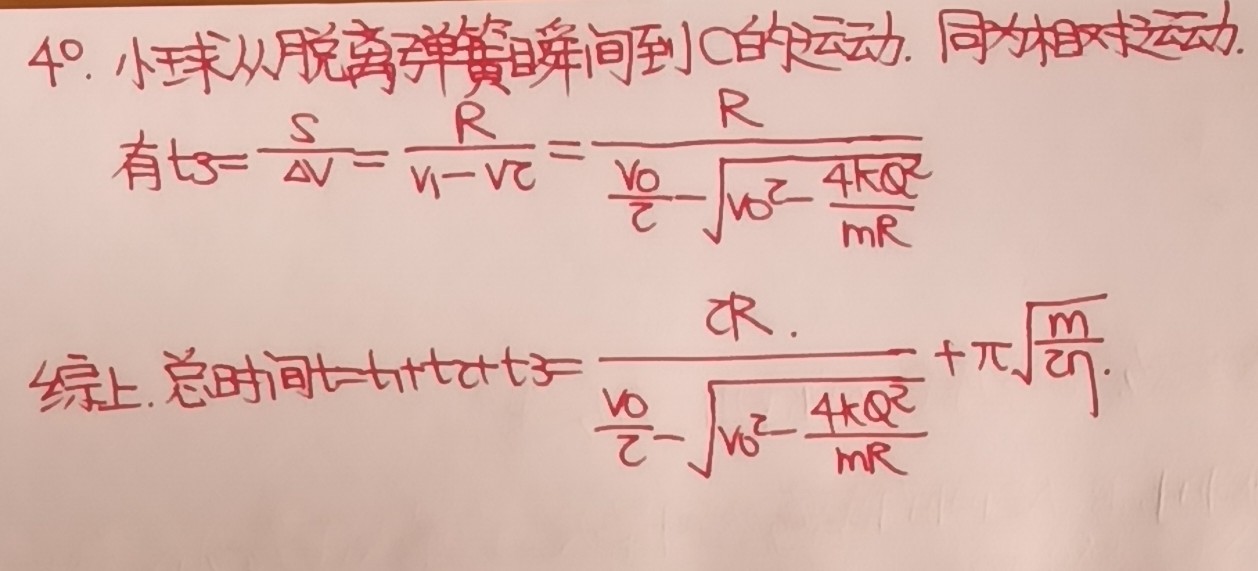 4°. 小球从脱离弹簧瞬间到C的运动. 同为相对运动.
有 t3 = S/ΔV = R/(V1-V2) = R/(V0/2 - √(V0² - 4kQ²/mR))
综上. 总时间t=t1+t2+t3= 2R./(V0/2 - √(V0² - 4kQ²/mR)) + π√(m/2η).